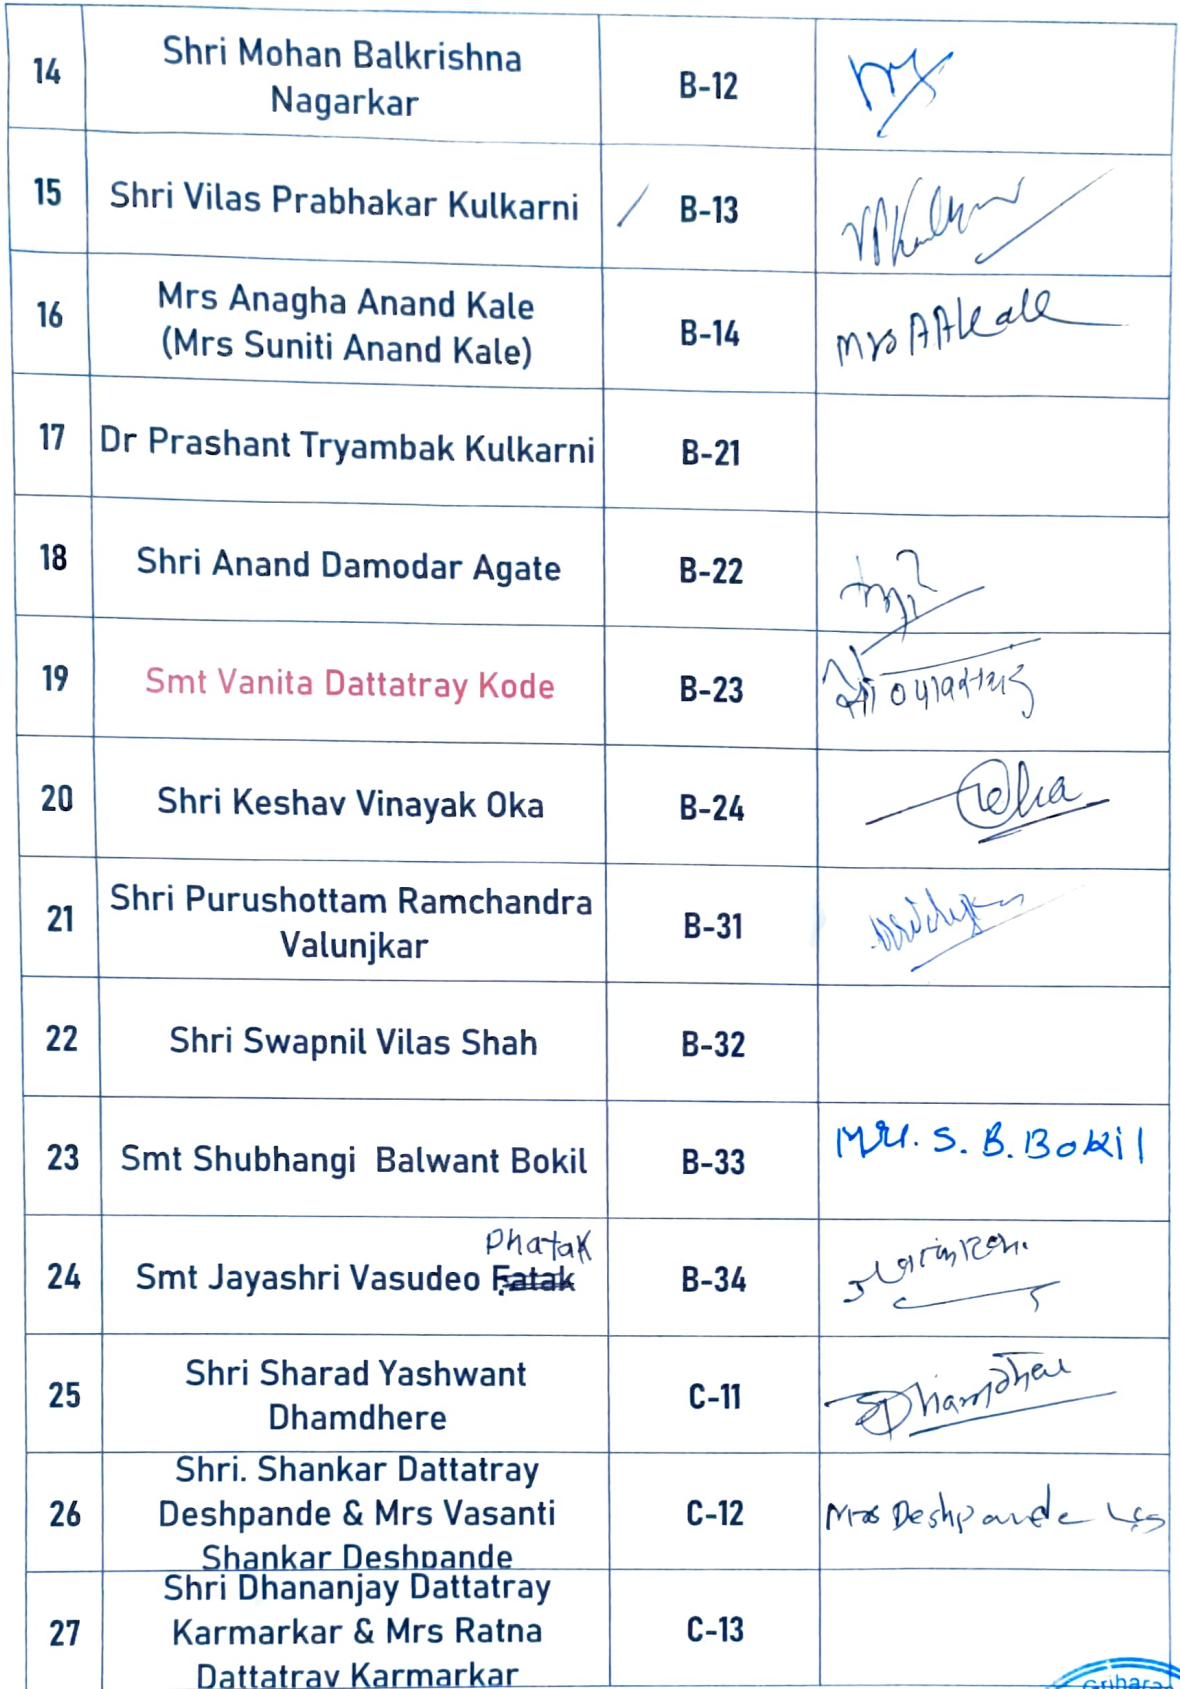 14 Shri Mohan Balkrishna B-12
Nagarkar
15 Shri Vilas Prabhakar Kulkarni / B-13 VPKulkarni
16 Mrs Anagha Anand Kale B-14 Mrs AAKale
(Mrs Suniti Anand Kale)
17 Dr Prashant Tryambak Kulkarni B-21
18 Shri Anand Damodar Agate B-22
19 Smt Vanita Dattatray Kode B-23
20 Shri Keshav Vinayak Oka B-24 Oka
21 Shri Purushottam Ramchandra B-31
Valunjkar
22 Shri Swapnil Vilas Shah B-32
23 Smt Shubhangi Balwant Bokil B-33 Mrs. S. B. Bokil
Phatak
24 Smt Jayashri Vasudeo Fatak B-34
25 Shri Sharad Yashwant C-11 Dhamdhere
Dhamdhere
26 Shri. Shankar Dattatray C-12 Mrs Deshpande
Deshpande & Mrs Vasanti
Shankar Deshpande
27 Shri Dhananjay Dattatray C-13
Karmarkar & Mrs Ratna
Dattatray Karmarkar